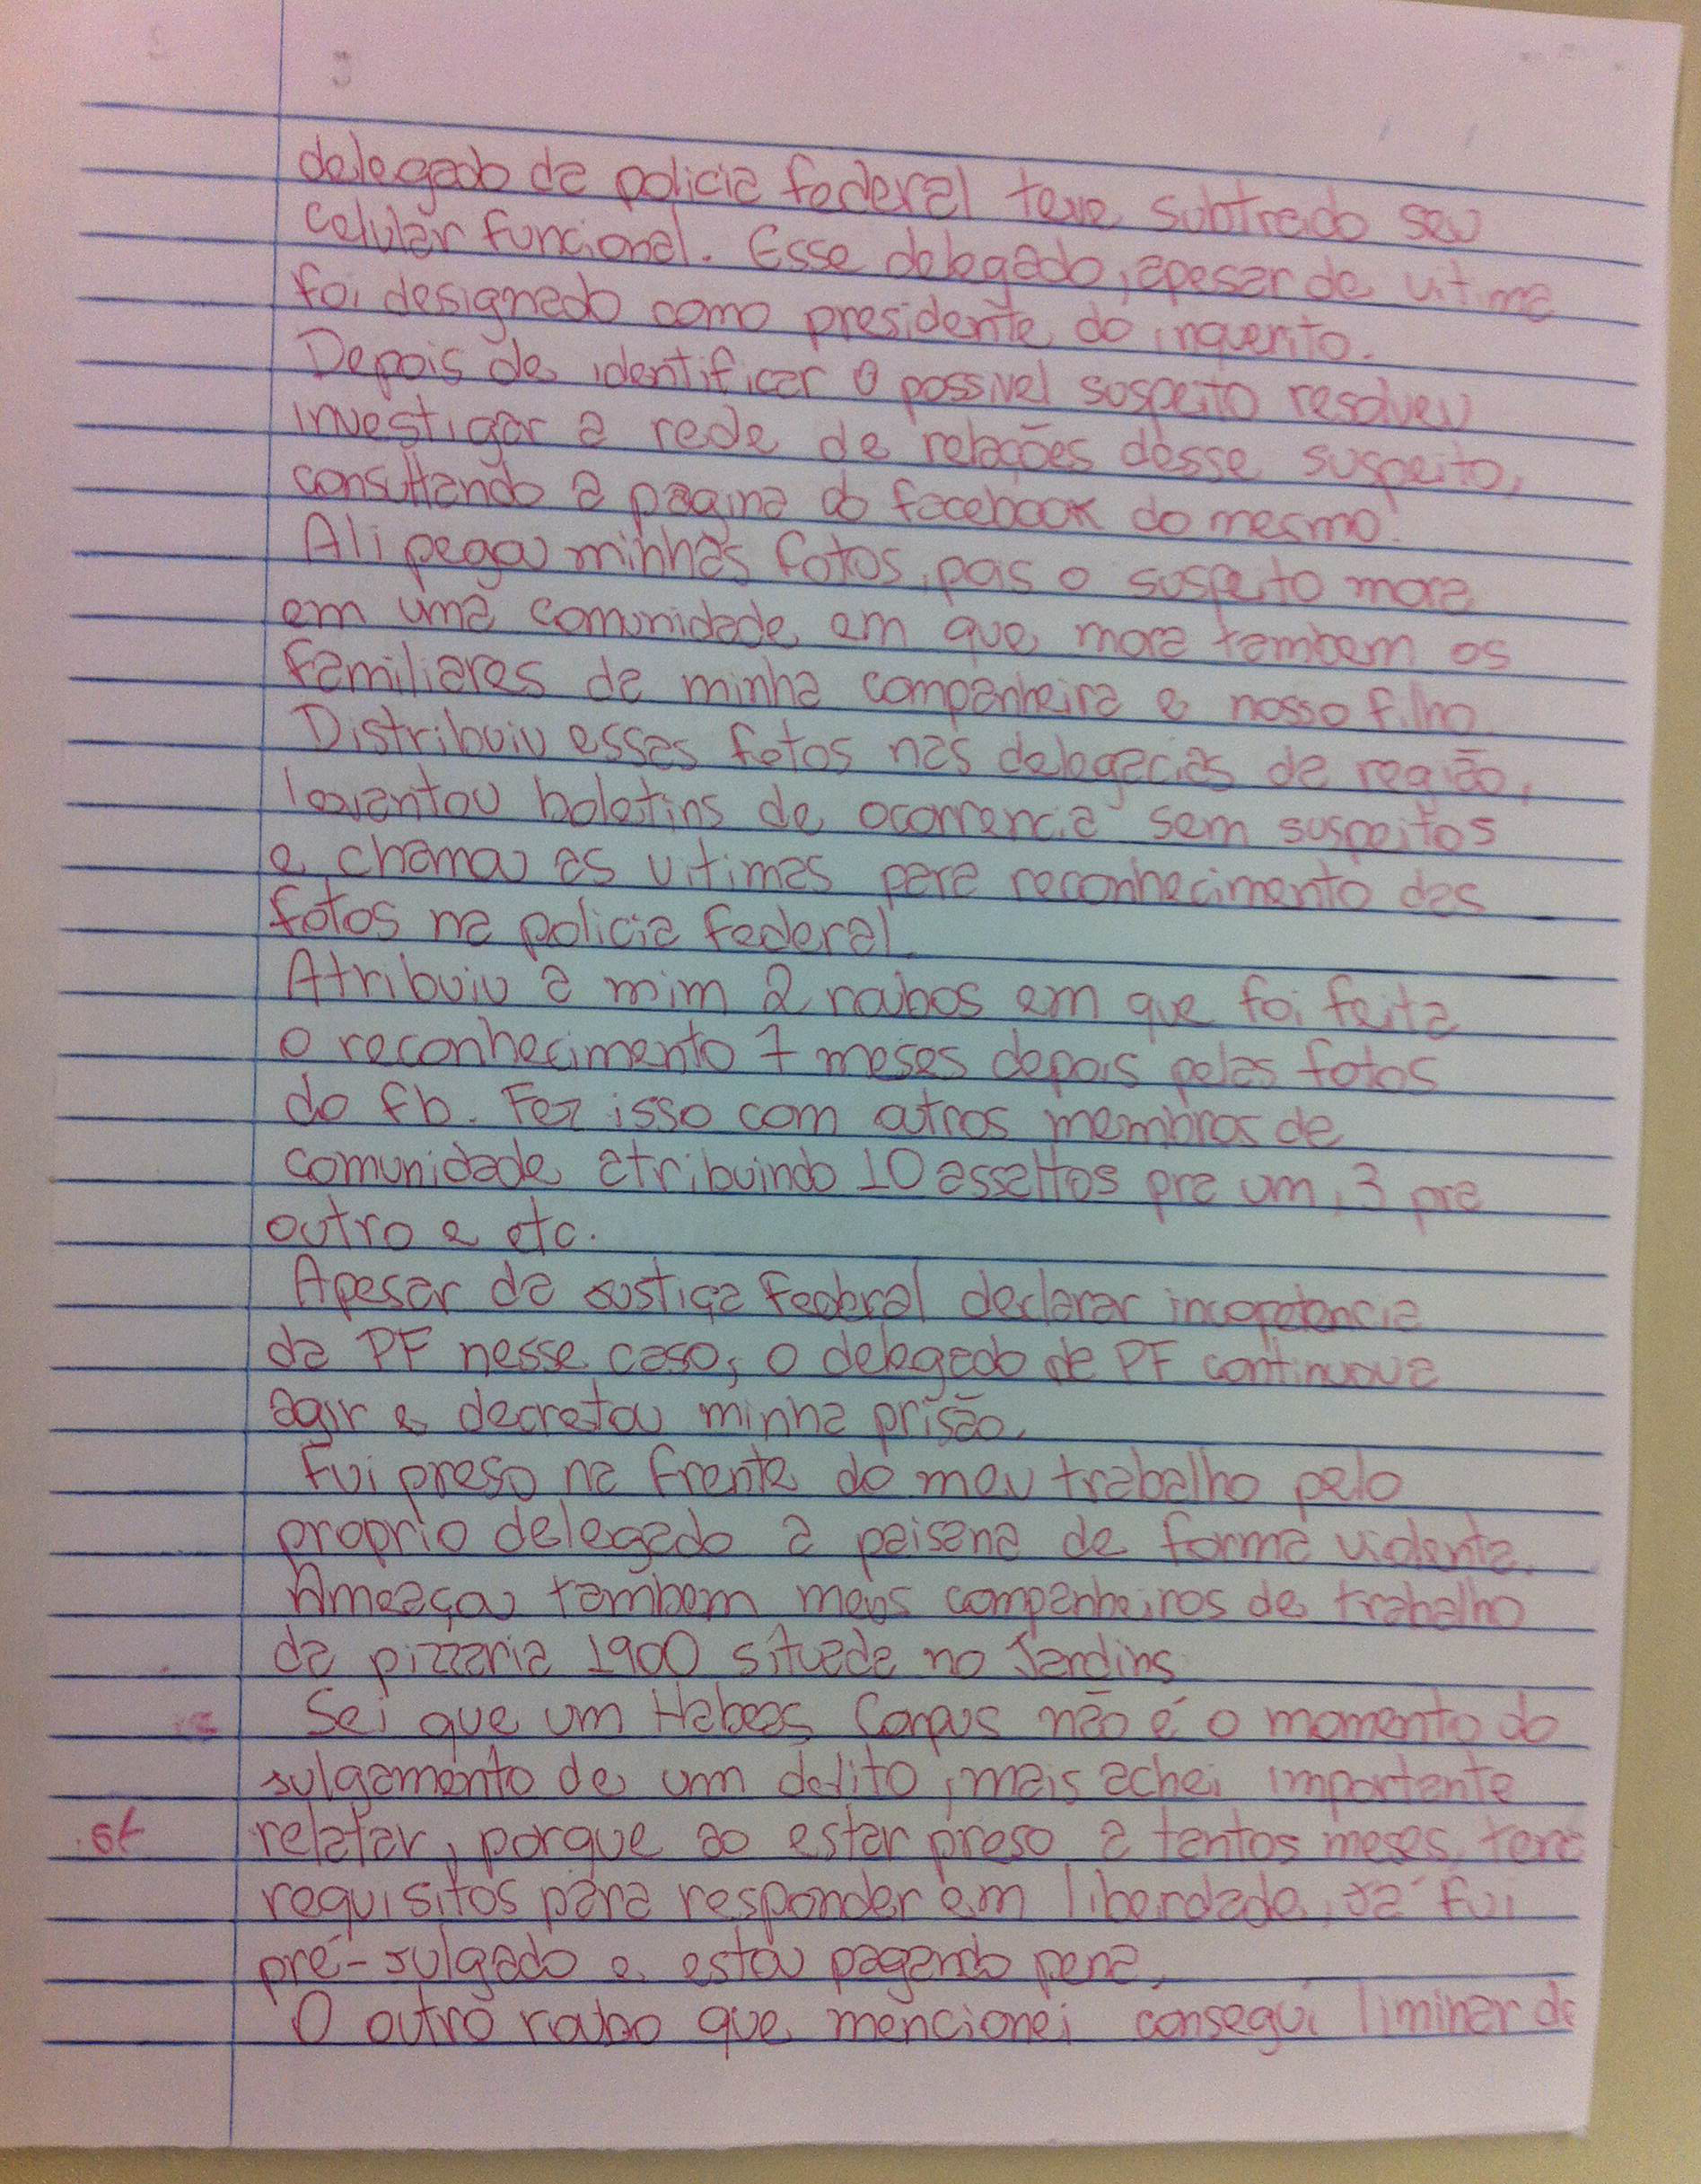 delegado da policia federal teve subtraido seu
celular funcional. Esse delegado, apesar de vitima
foi designado como presidente do inquerito.
Depois de identificar o possivel suspeito resolveu
investigar a rede de relações desse suspeito,
consultando a pagina do facebook do mesmo.
Ali pegou minhas fotos, pois o suspeito mora
em uma comunidade em que mora tambem os
familiares da minha companheira e nosso filho.
Distribuiu essas fotos nas delegacias da região,
levantou boletins de ocorrencia sem suspeitos
e chamou as vitimas para reconhecimento das
fotos na policia federal.
Atribuiu a mim 2 roubos em que foi feita
o reconhecimento 7 meses depois pelas fotos
do fb. Fez isso com outros membros da
comunidade atribuindo 10 assaltos pra um, 3 pra
outro e etc.
Apesar da Justiça Federal declarar incopetencia
da PF nesse caso, o delegado da PF continuou a
agir e decretou minha prisão.
Fui preso na frente do meu trabalho pelo
proprio delegado a paisana de forma violenta.
Ameaçou tambem meus companheiros de trabalho
da pizzaria 1900 situada no Jardins
Sei que um Habeas Corpus não é o momento do
julgamento de um delito, mais achei importante
relatar, porque ao estar preso a tantos meses, tendo
requisitos para responder em liberdade, já fui
pré-julgado e estou pagando pena.
O outro roubo que mencionei consegui liminar de